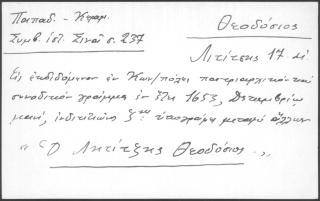 Παπαδ. - Κεραμ.
Συμβ. ἱστ. Σινᾶ σ. 237
Θεοδόσιος
Λιτίτσης 17 αἰ
Εἰς ἐκδιδόμενον ἐν Κων/πόλει πατριαρχικὸν καὶ
συνοδικὸν γράμμα ἐν ἔτει 1653, Δεκεμβρίῳ
μηνί, ἰνδικτιῶνος ζης ὑπογράφει μεταξὺ ἄλλων
"Ὁ Λητίτζης Θεοδόσιος".